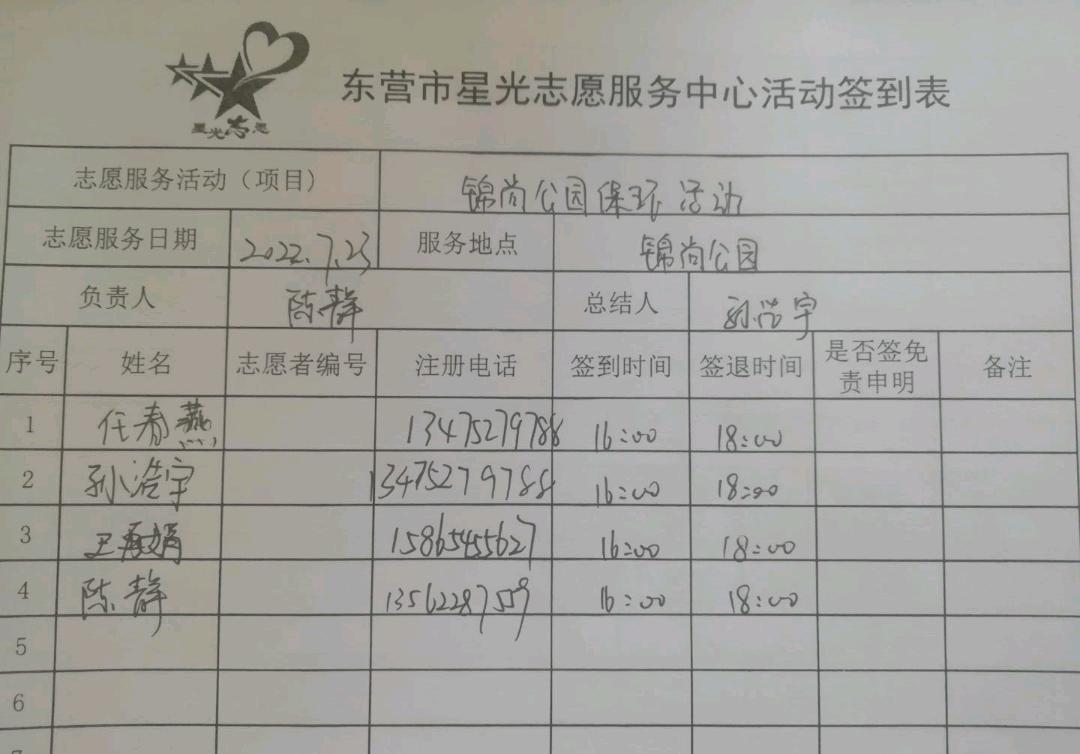 星光志愿
东营市星光志愿服务中心活动签到表
志愿服务活动（项目） 锦尚公园保环活动
志愿服务日期 2022.7.23 服务地点 锦尚公园
负责人 陈静 总结人 孙浩宇
序号 姓名 志愿者编号 注册电话 签到时间 签退时间 是否签免责申明 备注
1 任春燕 13475279788 16:00 18:00
2 孙浩宇 13475279788 16:00 18:00
3 王再娟 15865455627 16:00 18:00
4 陈静 13562287559 16:00 18:00
5
6